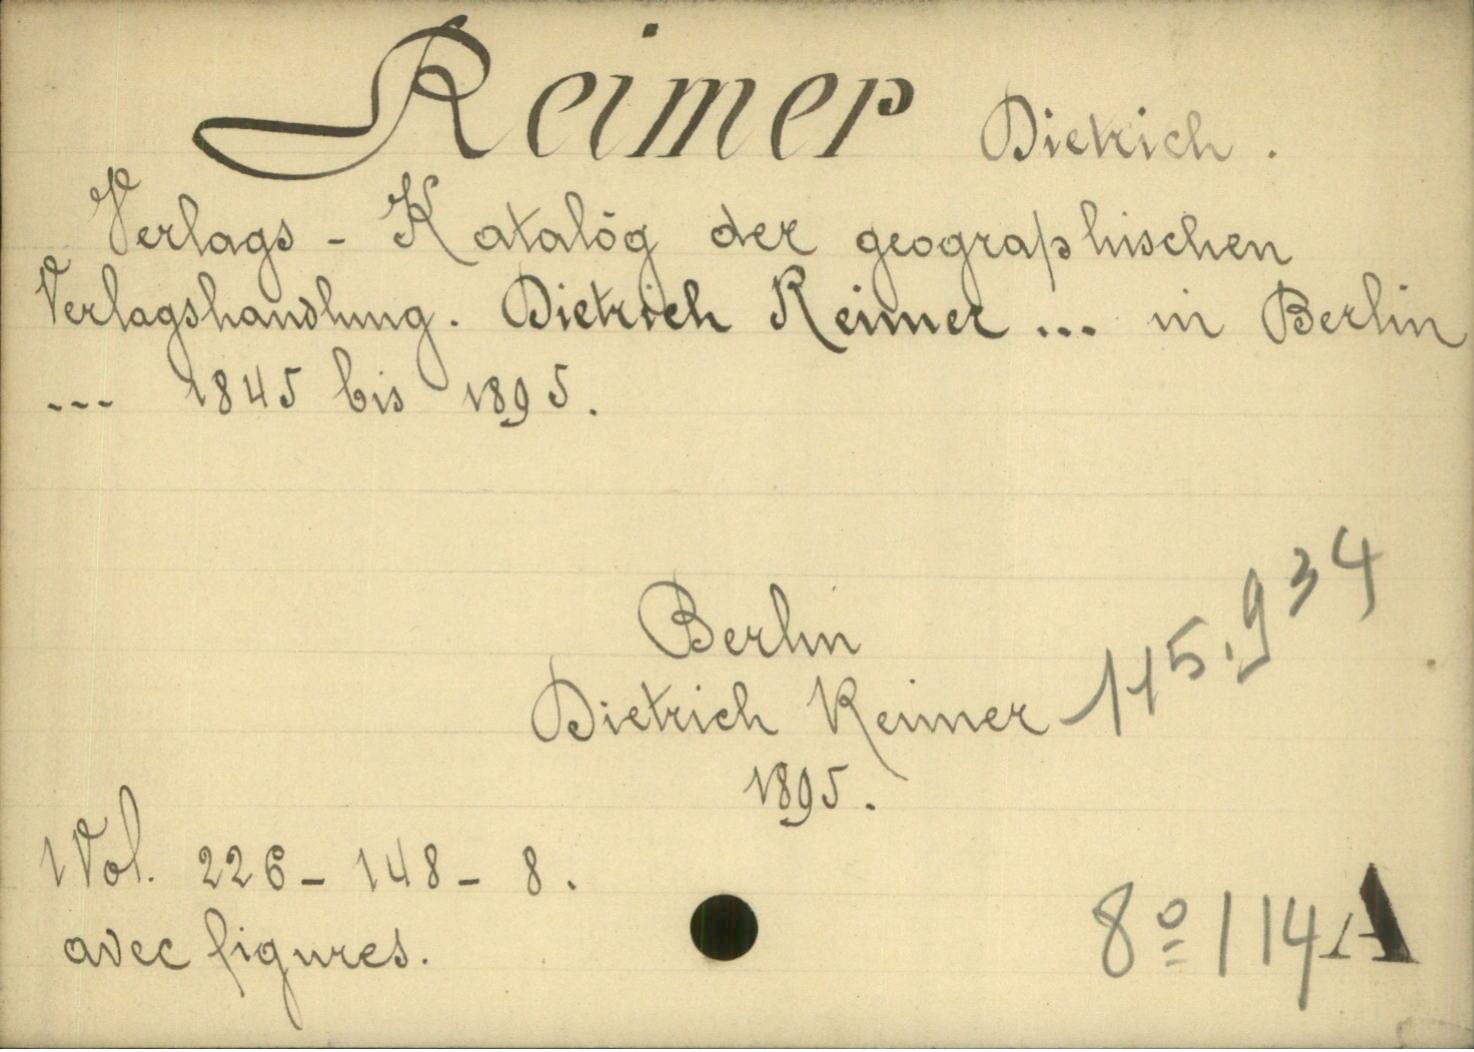 Reimer Dietrich.
Verlags - Katalóg der geographischen
Verlagshandlung. Dietrich Reimer ... in Berlin
... 1845 bis 1895.
Berlin
Dietrich Reimer
1895.
115.934
1 Vol. 226 - 148 - 8.
avec figures.
8º 114 A